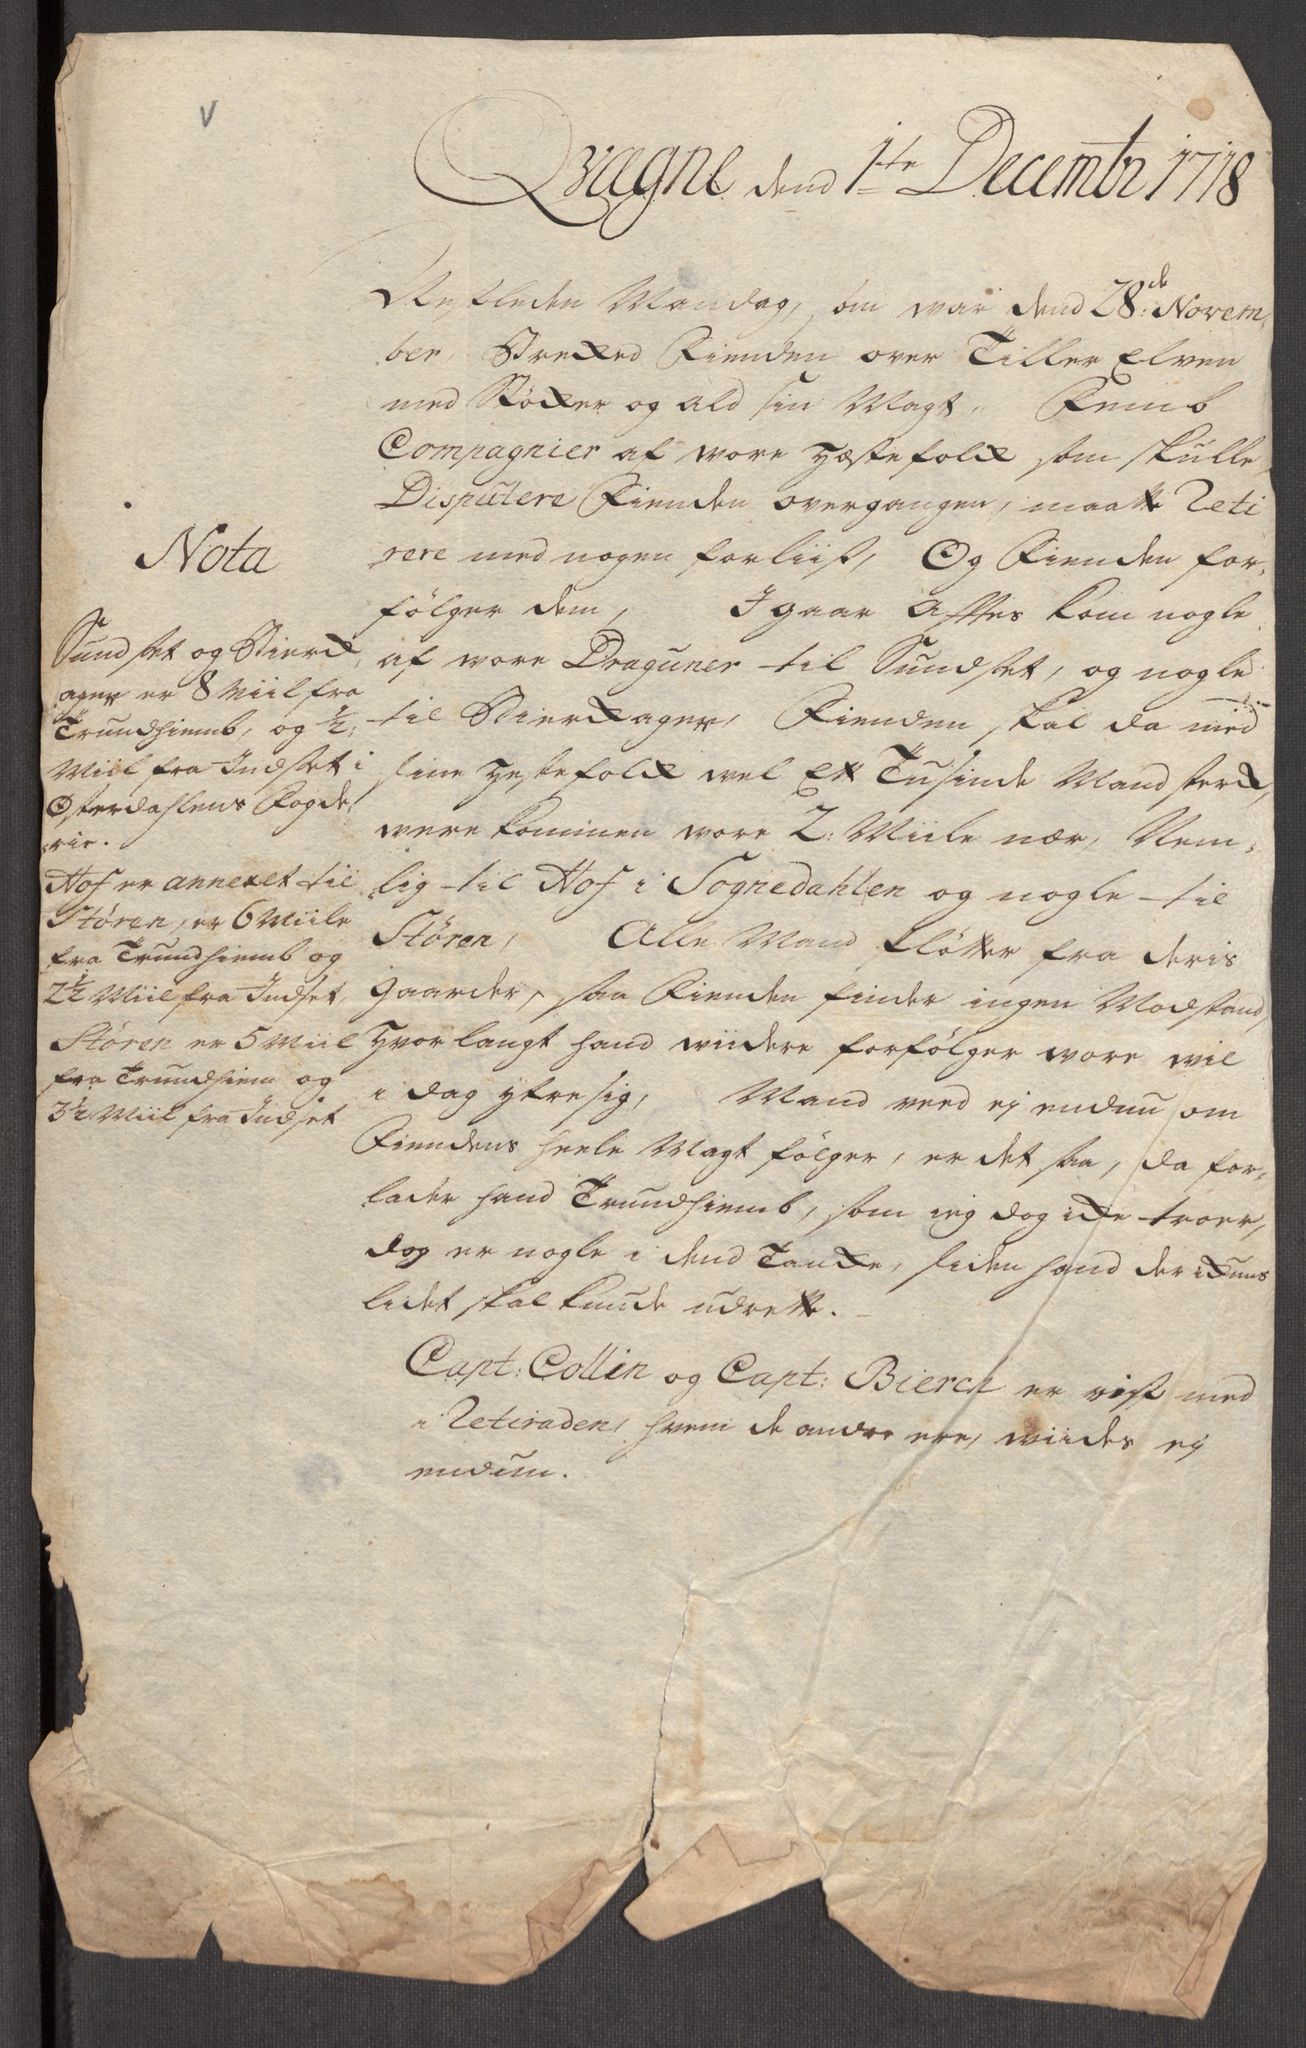 Qvægne dend 1te Decembr 1718
Næstleden Mandag, som war dend 28de Novem-
ber, Trekked Fienden over Tiller Elven
med Støcker og ald sin Magt. Femb
Compagnier af wore Hæstefolck som skulle
Disputere Fienden overgangen, maatte Reti
rere med nogen forliist, Og Fienden for-
følger dem, I gaar Afftes kom nogle
af wore Draguner til Sundset, og nogle
til Bierckager, Fienden skal da med
sine Hestefolck wel Ett Tusinde Mand sterck,
were kommen wore 2: Miile nær, Nem-
lig til Hof i Sognedahlen og nogle til
Støren, Alle Mand fløtter fra deris
Gaarder, saa Fienden finder ingen Modstand,
Hvor langt hand wiidere forfølger wore wil
i dag ytre sig, Mand veed ej endnu om
Fiendens heele Magt følger, er det saa, da for-
lader hand Trundhiemb, som ieg dog icke troer,
dog er nogle i dend Tancke, siden hand der ickuns
lidet skal kunde udrette.
Capt: Collin og Capt: Bierch er vist med
i Retiraden, hvem de andre ere, wiides ej
endnu.
Nota
Sundset og Bierck
ager er 8 Miil fra
Trundhiemb, og ½
Miil fra Indset i
Østerdahlens Fogde
rie.
Hof er annexet til
Støren, er 6 Miile
fra Trundhiemb og
2½ Miil fra Indset
Støren er 5 Miil
fra Trundhiem og
3½ Miil fra Indset